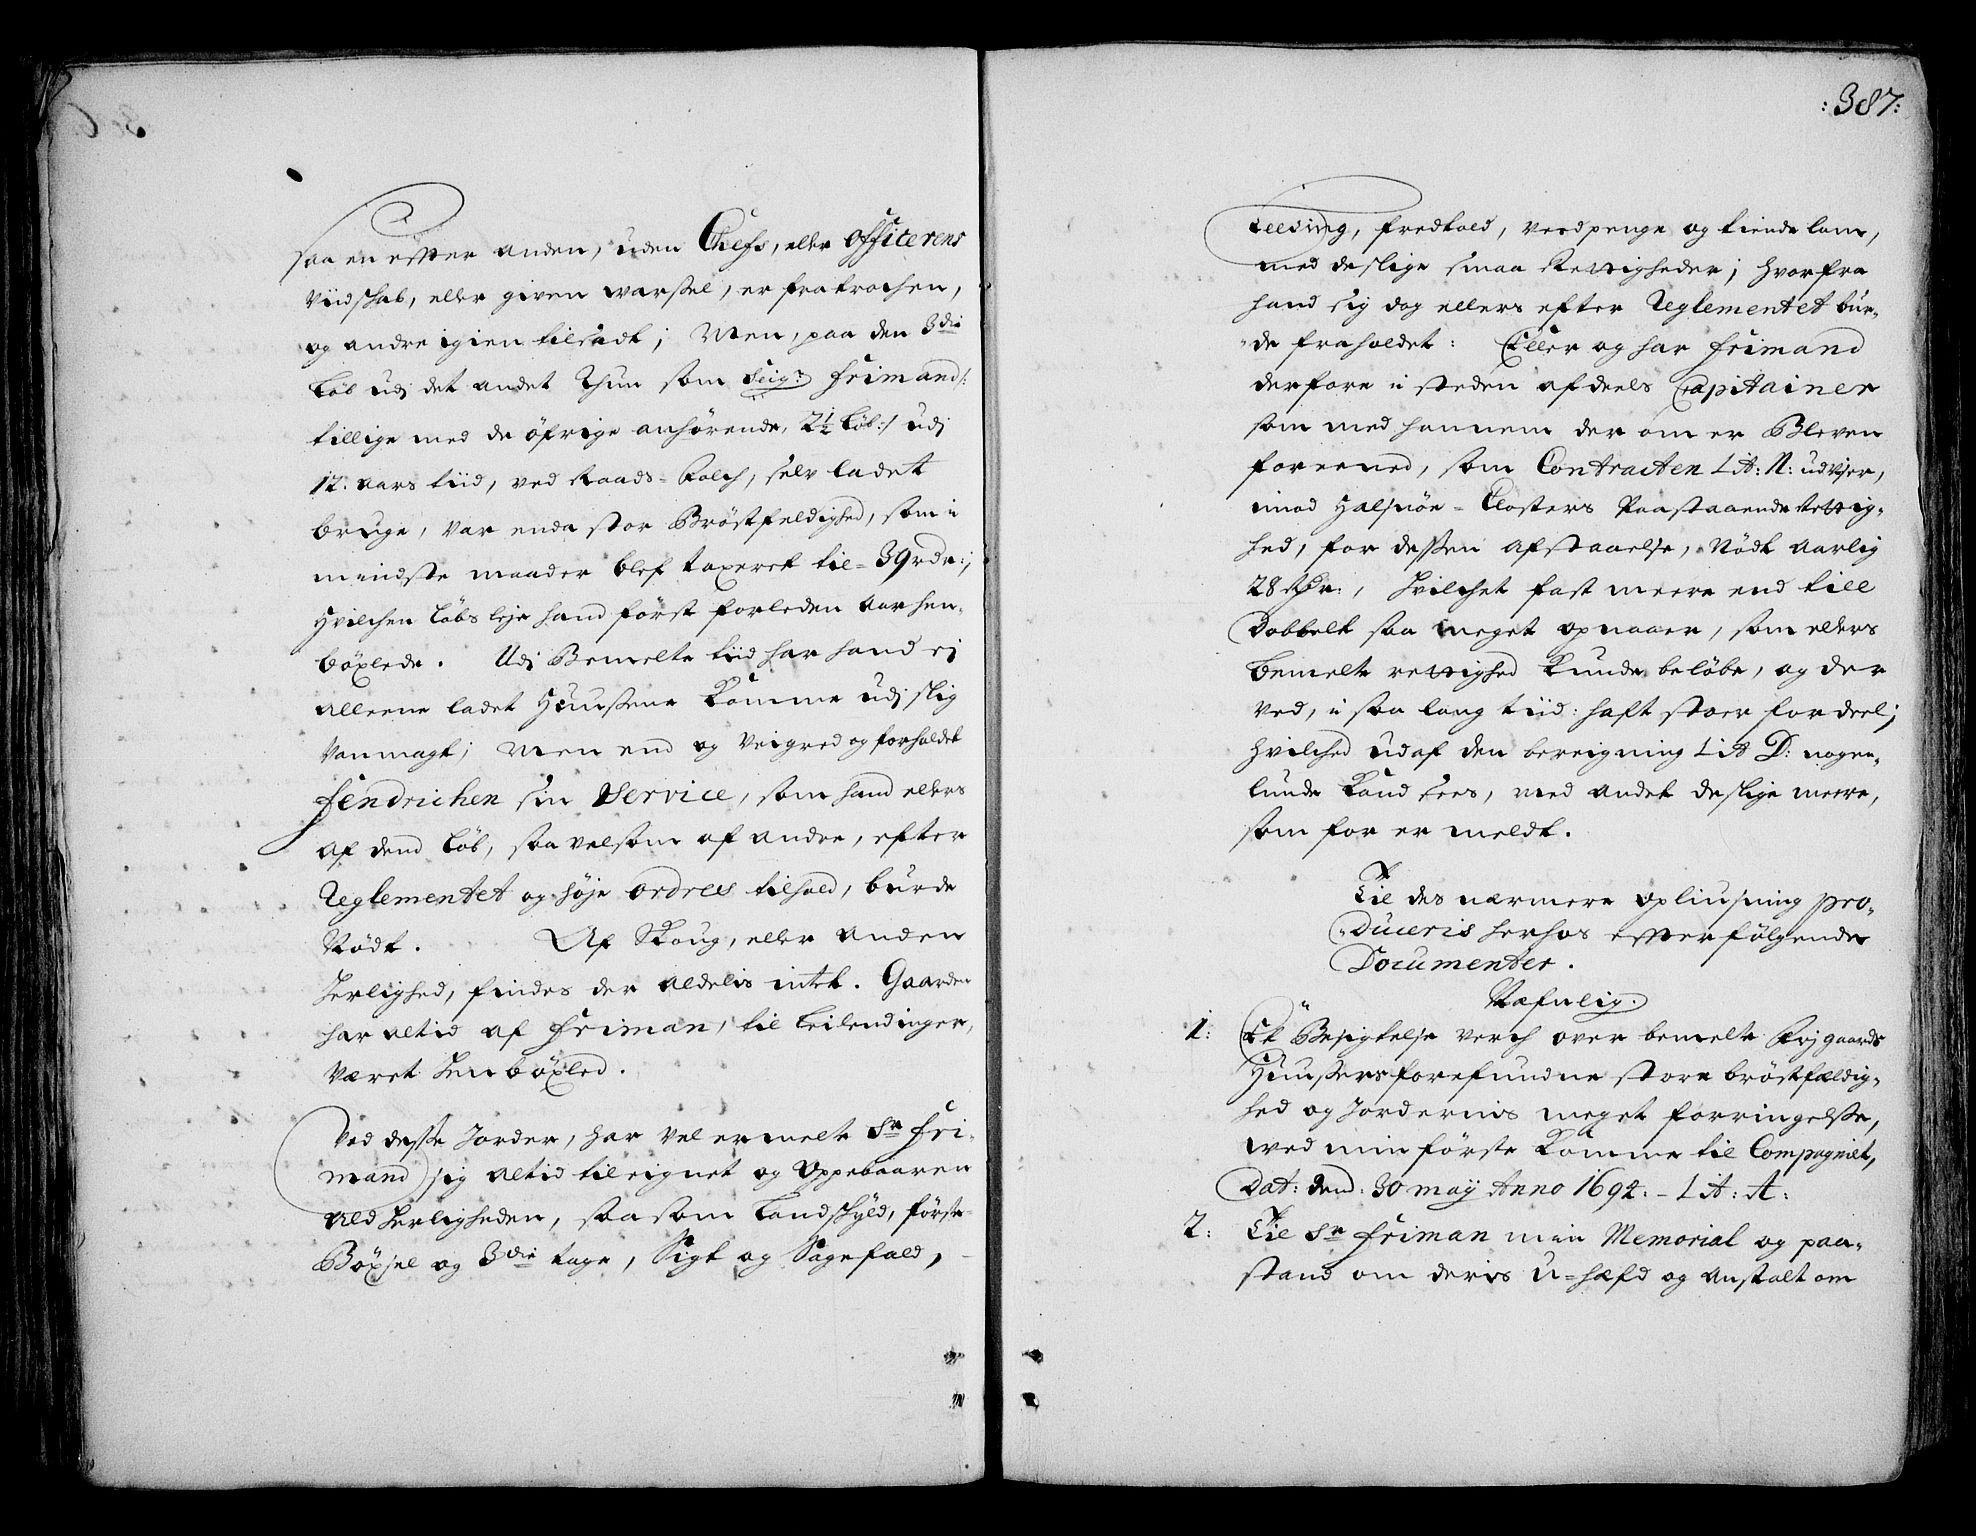 saa en efter anden, uden Chefs, eller Officerens
Viidschab, eller given warsel, er fratrochen,
og andre igien tilsadt; Men, paa den 3die
Løb udj det andet Thun som Seigr: Frimand /:
tillige med de öfrige anhörende, 2½ Løb:/ udj
12. aars tiid, ved Raads-Folch, selv ladet
bruge, var enda stor Bröstfeldighed, som i
mindste maader blef taxeret til= 39 rdr:;
Hvilchen Løbs leje hand först forleden aar hen-
böxlede. Udj Bemelte tiid har hand ej
alleene ladet Huussene Komme udj slig
Vanmagt; men end og Veigred og forholdet
Fendrichen sin Service, som hand ellers
af dend Løb, saa velsom af andre, efter
Reglementet og höje ordres tilhold, burde
Nödt. Af Skoug, eller anden
Herlighed, findes der aldelis intet. Gaarden
har altid af Friman, til Leilendinger,
Været henböxled.
Ved desse Jorder, har Vel ermelte Sr Fri-
mand sig altid tileignet og Oppebaaren
ald herligheden, saasom Landschyld, förste-
Böxsel og 3die tage, Sigt og Sagefald,
:387:
Leeding, fredtold, verdpenge og tiende lam,
med deslige smaa Rettigheder; hvorfra
hand sig dog ellers efter Reglementet bur-
de fraholdet: Eller og har Frimand
derfore i steden af deels Capitainer
som med hannem der om er Bleven
foreened, som Contracten Lit: N: udviser,
imod Halsnöe-Closters Paastaaende Rettig-
hed, for dessen afstaaelse, Nödt aarlig
28 Rdr:, Hvilchet fast meere end till
Dobbelt saa meget opnaaer, som ellers
bemelte rettighed Kunde belöbe, og der
ved, i saa lang tiid: haft stoer fordeel;
hvilched udaf den bereigning Lit D: nogen-
lunde Kand sees, med andet deslige meere,
som for er meldt.
Til des nærmere opliusning pro-
duceris herhos efterfölgende
Documenter.
Næfnlig.
1: Et Besigtelse verch over bemelte Rejgaards
Huussers forefundne store bröstfældig-
hed og Jordernis meget forringelsse,
ved min förste Komme til Compagniet,
Dat: den: 30 maÿ Anno 1694: - Lit: A:
2: Til Sr Friman min Memorial og paa-
stand om deris U-hæfd og anstalt om